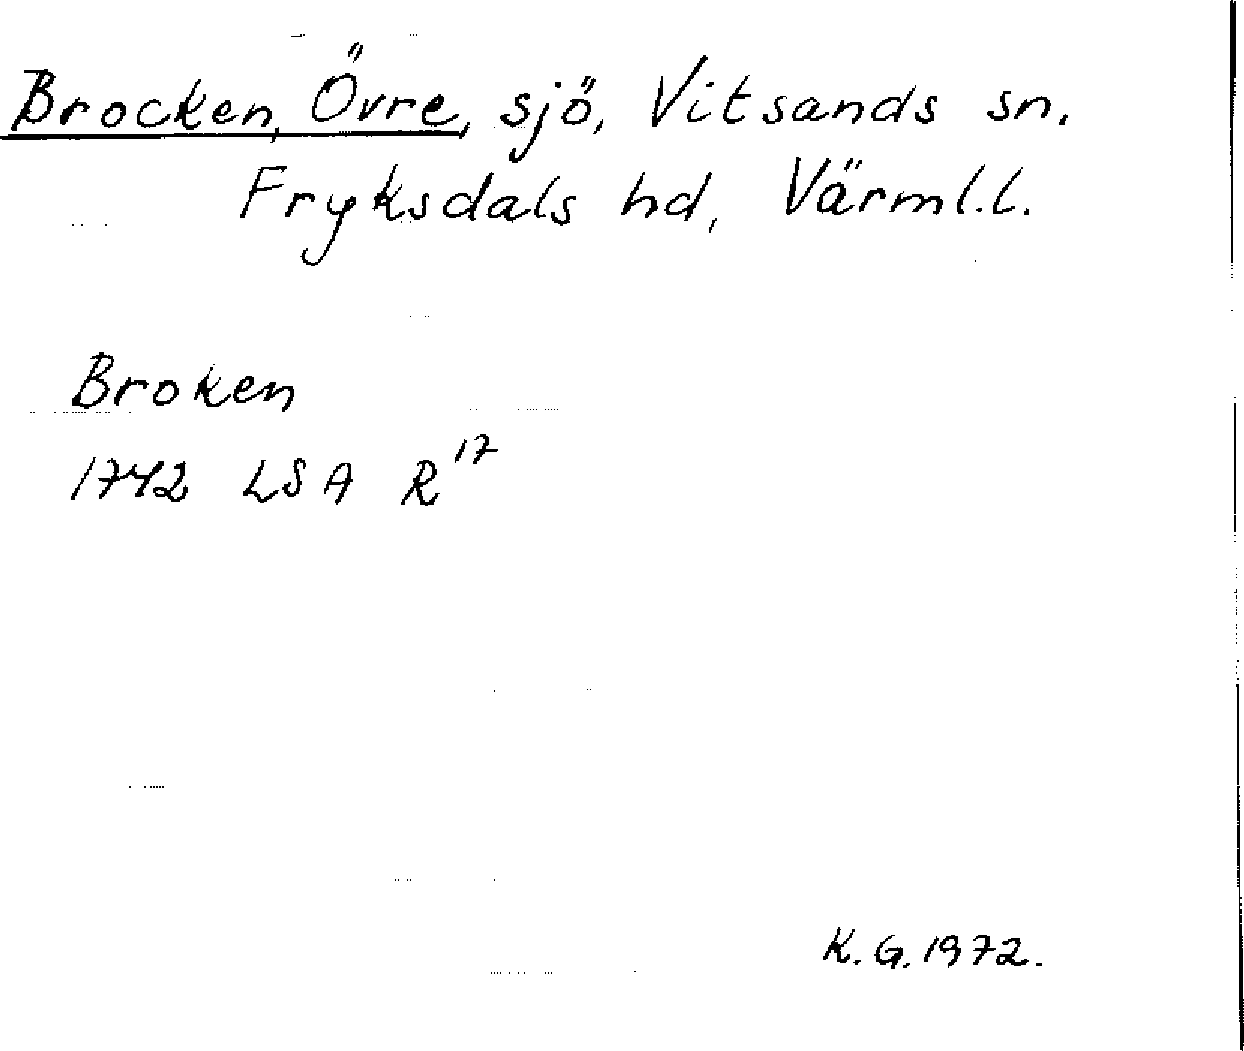 Brocken, Övre, sjö, Vitsands sn.
Fryksdals hd, Värml.l.
Broken
1742 LSA R 17
K.G. 1972.